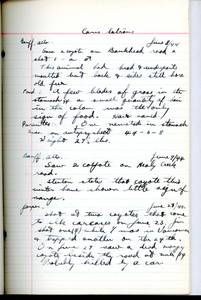 Canis latrans
Banff, Alta. June 8/44
Saw a coyote on Bankhead road &
shot it
This animal had head & underparts
moulted but back & sides still had
old fur.
A few blades of grass in the
stomach & a small quantity of
in the colon was the only
sign of food.
Parasites. One nematode stomach
see autopsy sheet 44-6-8
Weight 27 lbs.
Banff, Alta. June 9/44
Saw a coyote on Healy Creek
road.
states that coyote this
winter have shown little sign of
mange.
June 28/44
shot at two coyotes that came
to elk carcass on June 23,
shot one (♀) while I was in Vancouver
& trapped another on the 24th.
On June 27 saw a dead mangy
coyote beside the road at mile
Probably killed by a car.